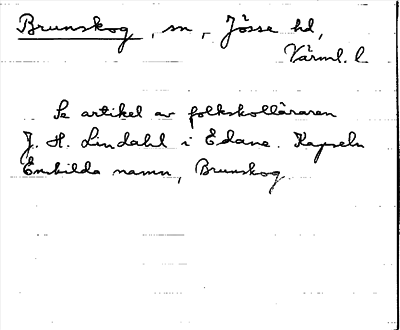 Brunskog, sn, Jösse hd,
Värml. l.
Se artikel av folkskolläraren
J. H. Lindahl i Edane. Kapseln
Enskilda namn, Brunskog.